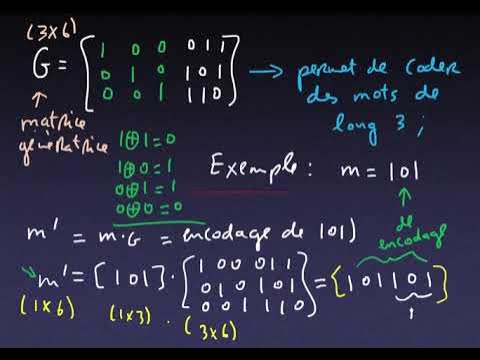 (3x6)
G = [ 1 0 0 0 1 1
0 1 0 1 0 1
0 0 1 1 1 0 ]
→ permet de coder
des mots de
long 3 ;
↑
matrice
génératrice
1⊕1=0
1⊕0=1
0⊕1=1
0⊕0=0
Exemple : m = 101
↑
de
encodage
m' = m·G = encodage de 101)
m' = [101] · [ 1 0 0 0 1 1
0 1 0 1 0 1
0 0 1 1 1 0 ] = [101101]
(1x6) (1x3) · (3x6)